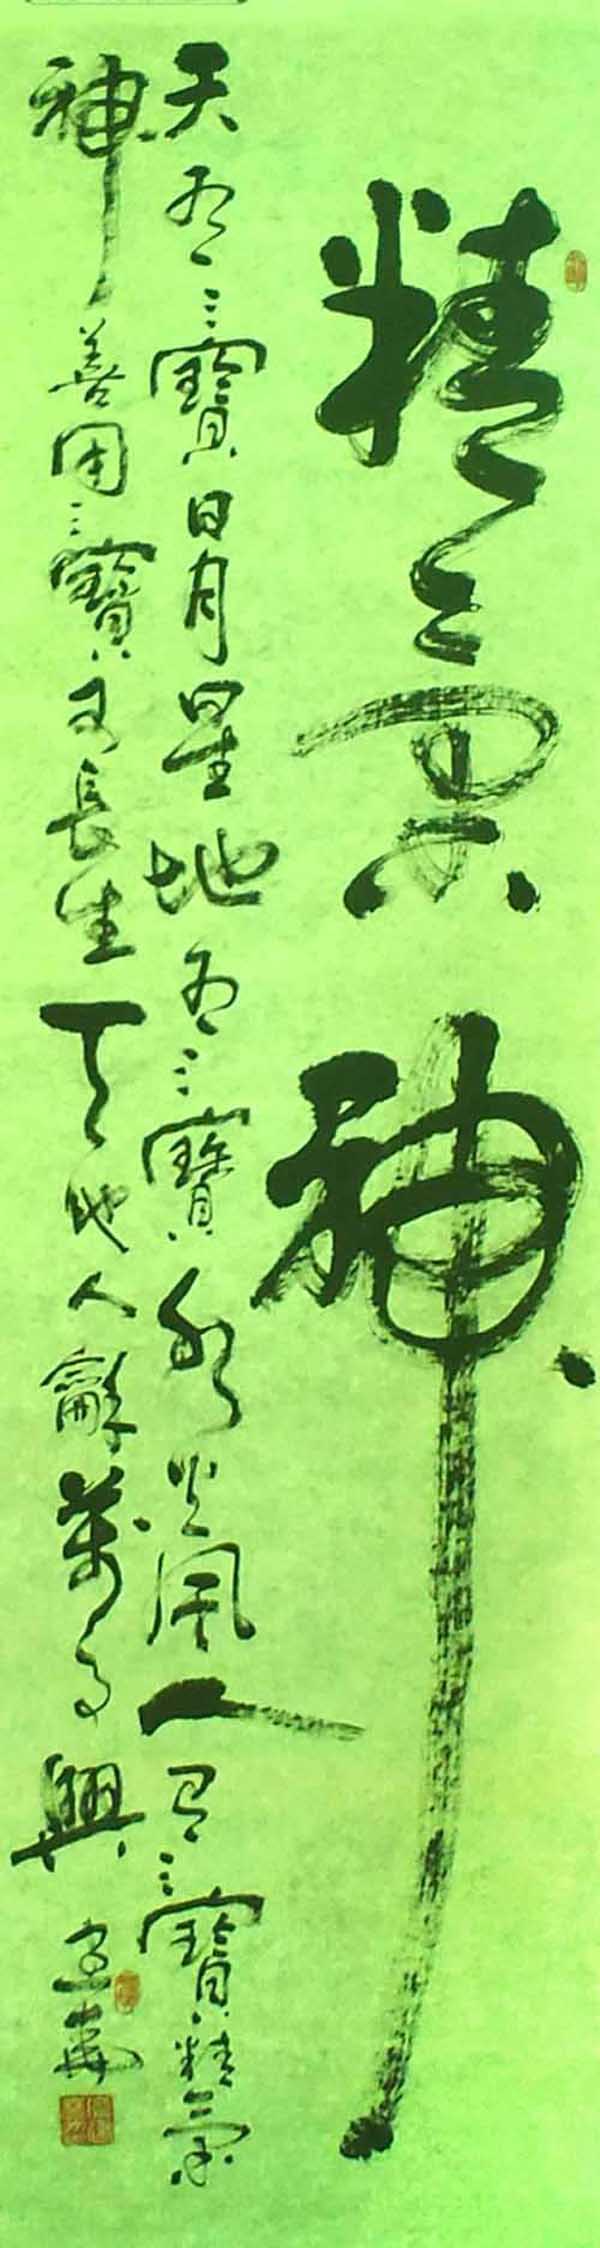 精氣神
天有三寶日月星地有三寶水火風人有三寶精氣
神善用三寶可長生天地人龢萬事興